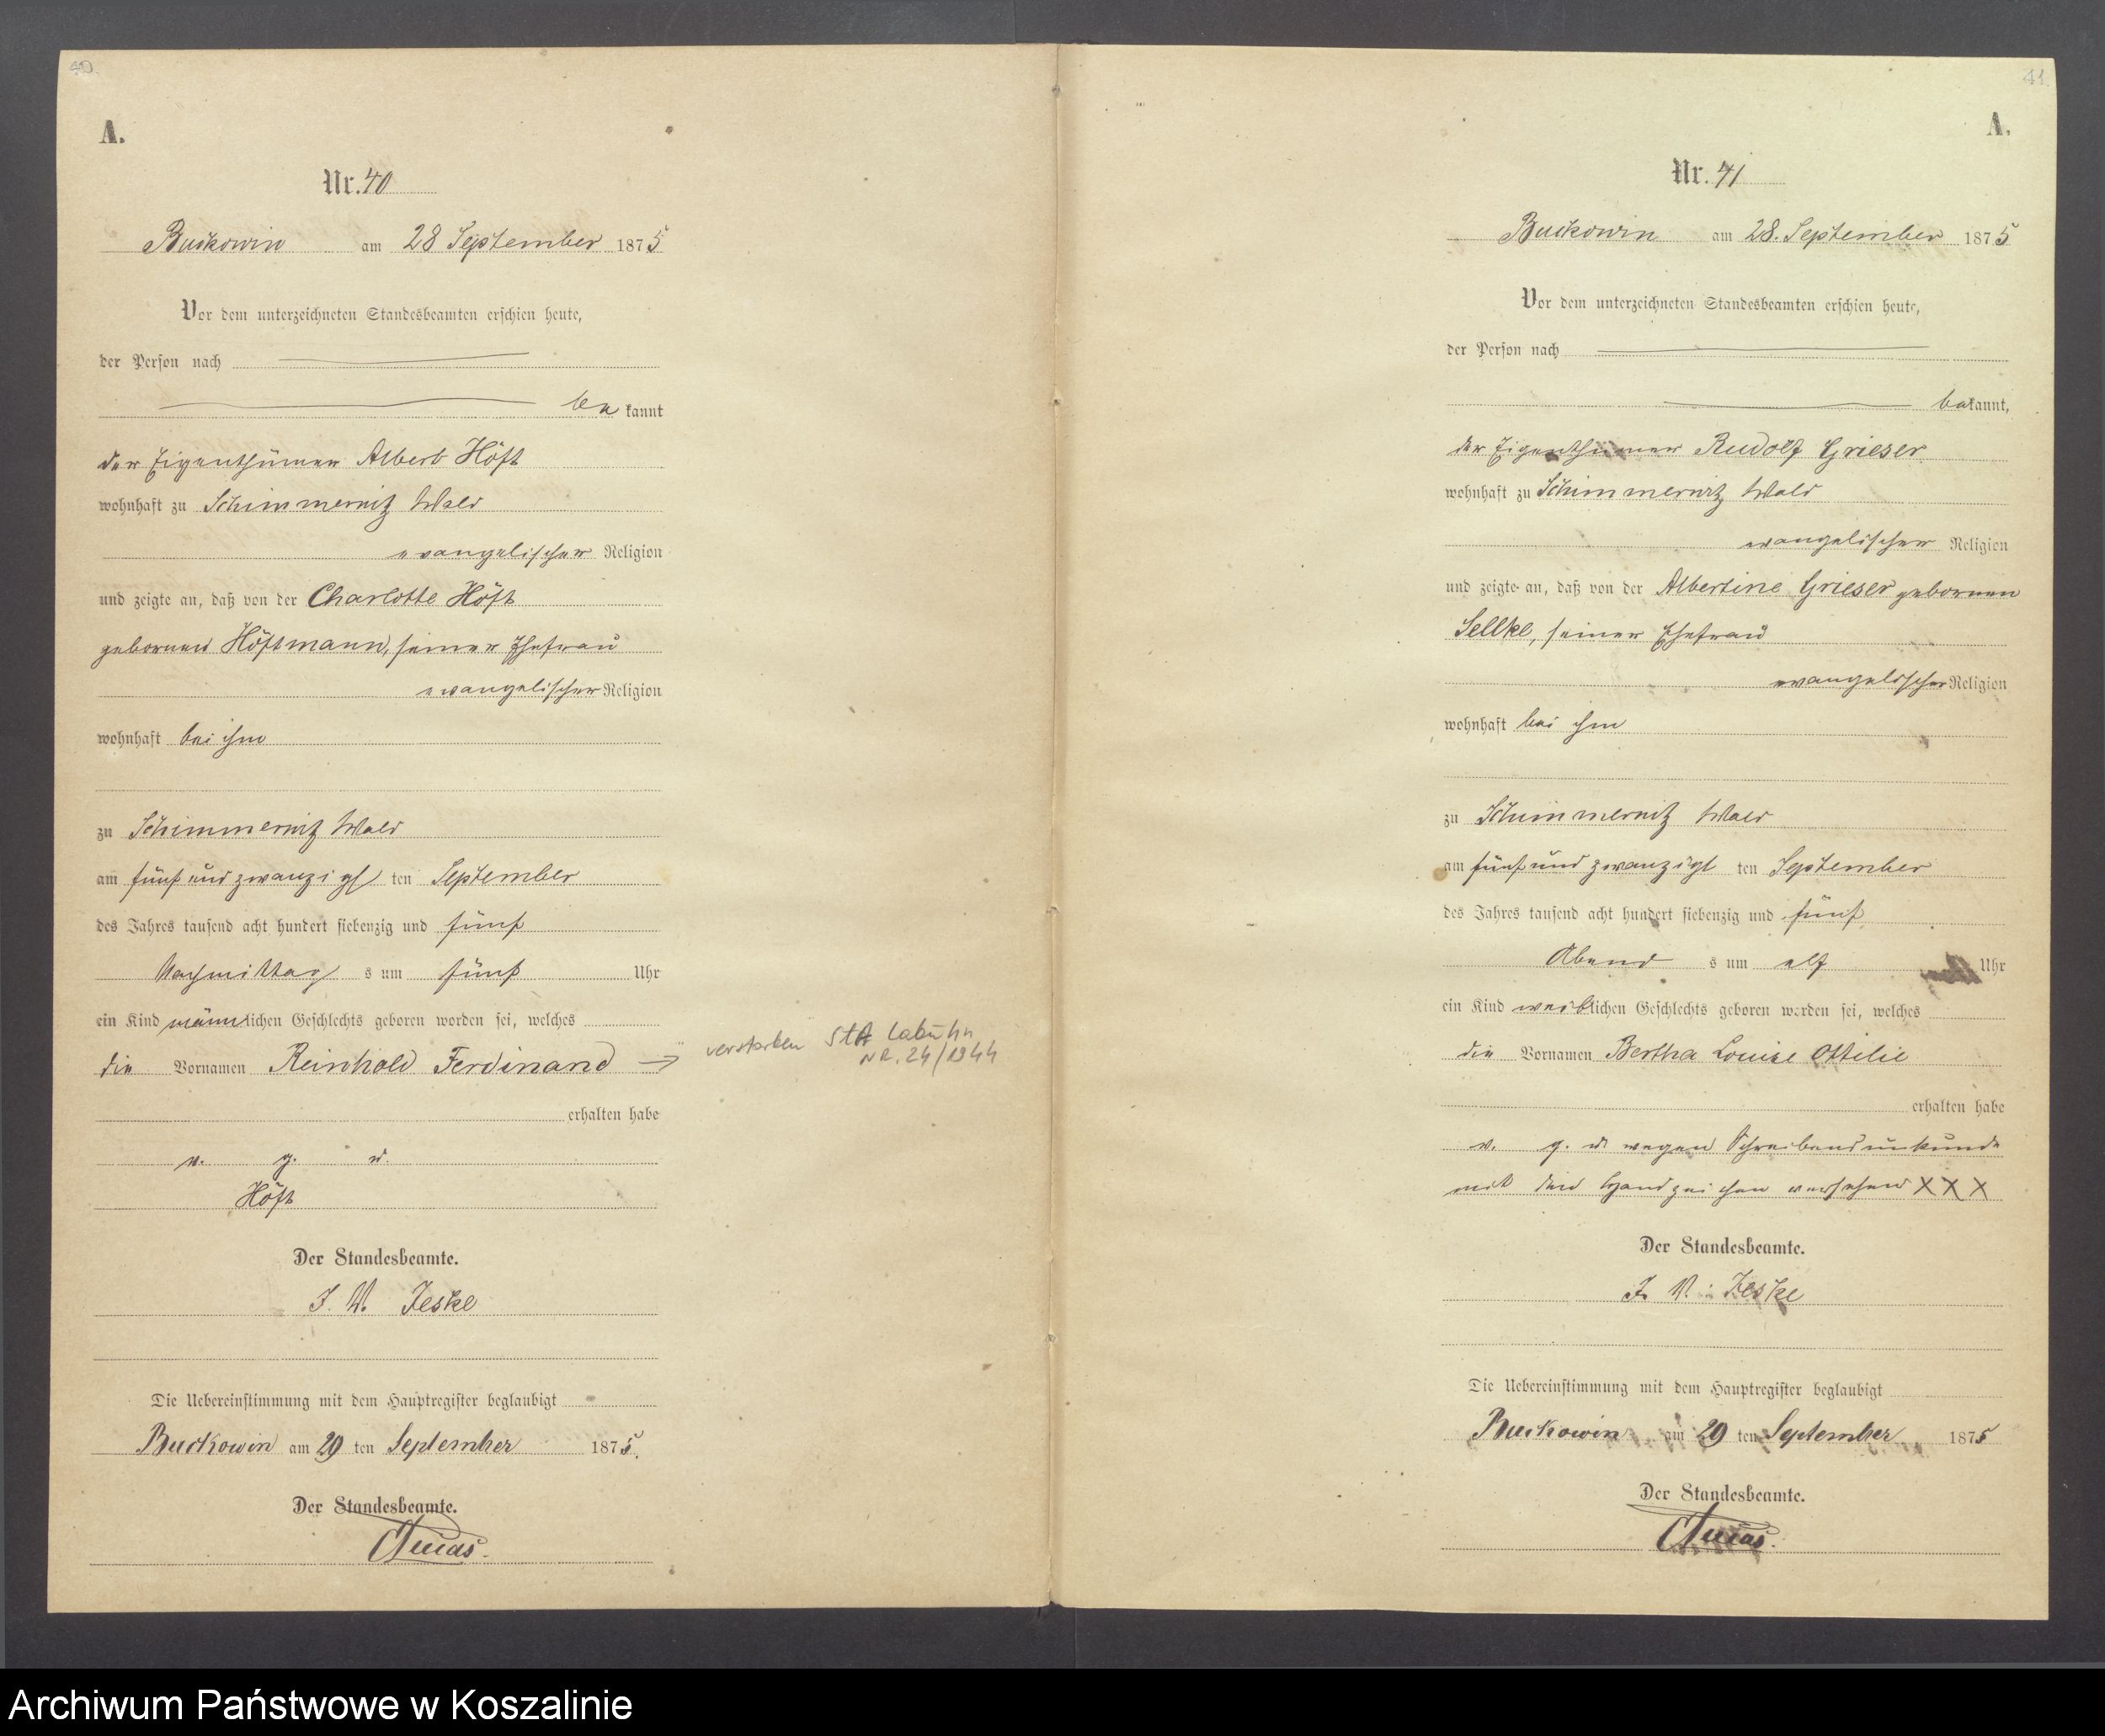 40.
A.
Nr. 40
Buckowin am 28 September 1875
Vor dem unterzeichneten Standesbeamten erschien heute,
der Person nach
bekannt
der Eigenthümer Albert Höft
wohnhaft zu Schimmernitz Wald
evangelischer Religion
und zeigte an, daß von der Charlotte Höft
gebornen Höftmann, seiner Ehefrau
evangelischer Religion
wohnhaft bei ihm
zu Schimmernitz Wald
am fünf und zwanzigsten September
des Jahres tausend acht hundert siebenzig und fünf
Nachmittags um fünf Uhr
ein Kind männlichen Geschlechts geboren worden sei, welches
die Vornamen Reinhold Ferdinand → verstorben StA Labuhn
NR. 24/1944
erhalten habe
v. g. u.
Höft
Der Standesbeamte.
I. V. Jeske
Die Uebereinstimmung mit dem Hauptregister beglaubigt
Buckowin am 29 ten September 1875.
Der Standesbeamte.
41.
A.
Nr. 41
Buckowin am 28. September 1875
Vor dem unterzeichneten Standesbeamten erschien heute,
der Person nach
bekannt,
der Eigenthümer Rudolf Grieser
wohnhaft zu Schimmernitz Wald
evangelischer Religion
und zeigte an, daß von der Albertine Grieser gebornen
Sellke, seiner Ehefrau
evangelischer Religion
wohnhaft bei ihm
zu Schimmernitz Wald
am fünf und zwanzigsten September
des Jahres tausend acht hundert siebenzig und fünf
Abends um elf Uhr
ein Kind weiblichen Geschlechts geboren worden sei, welches
die Vornamen Bertha Louise Ottilie
erhalten habe
v. g. u. wegen Schreibensunkunde
mit den Handzeichen versehen XXX
Der Standesbeamte.
I. V. Jeske
Die Uebereinstimmung mit dem Hauptregister beglaubigt
Buckowin am 29 ten September 1875
Der Standesbeamte.
Archiwum Państwowe w Koszalinie